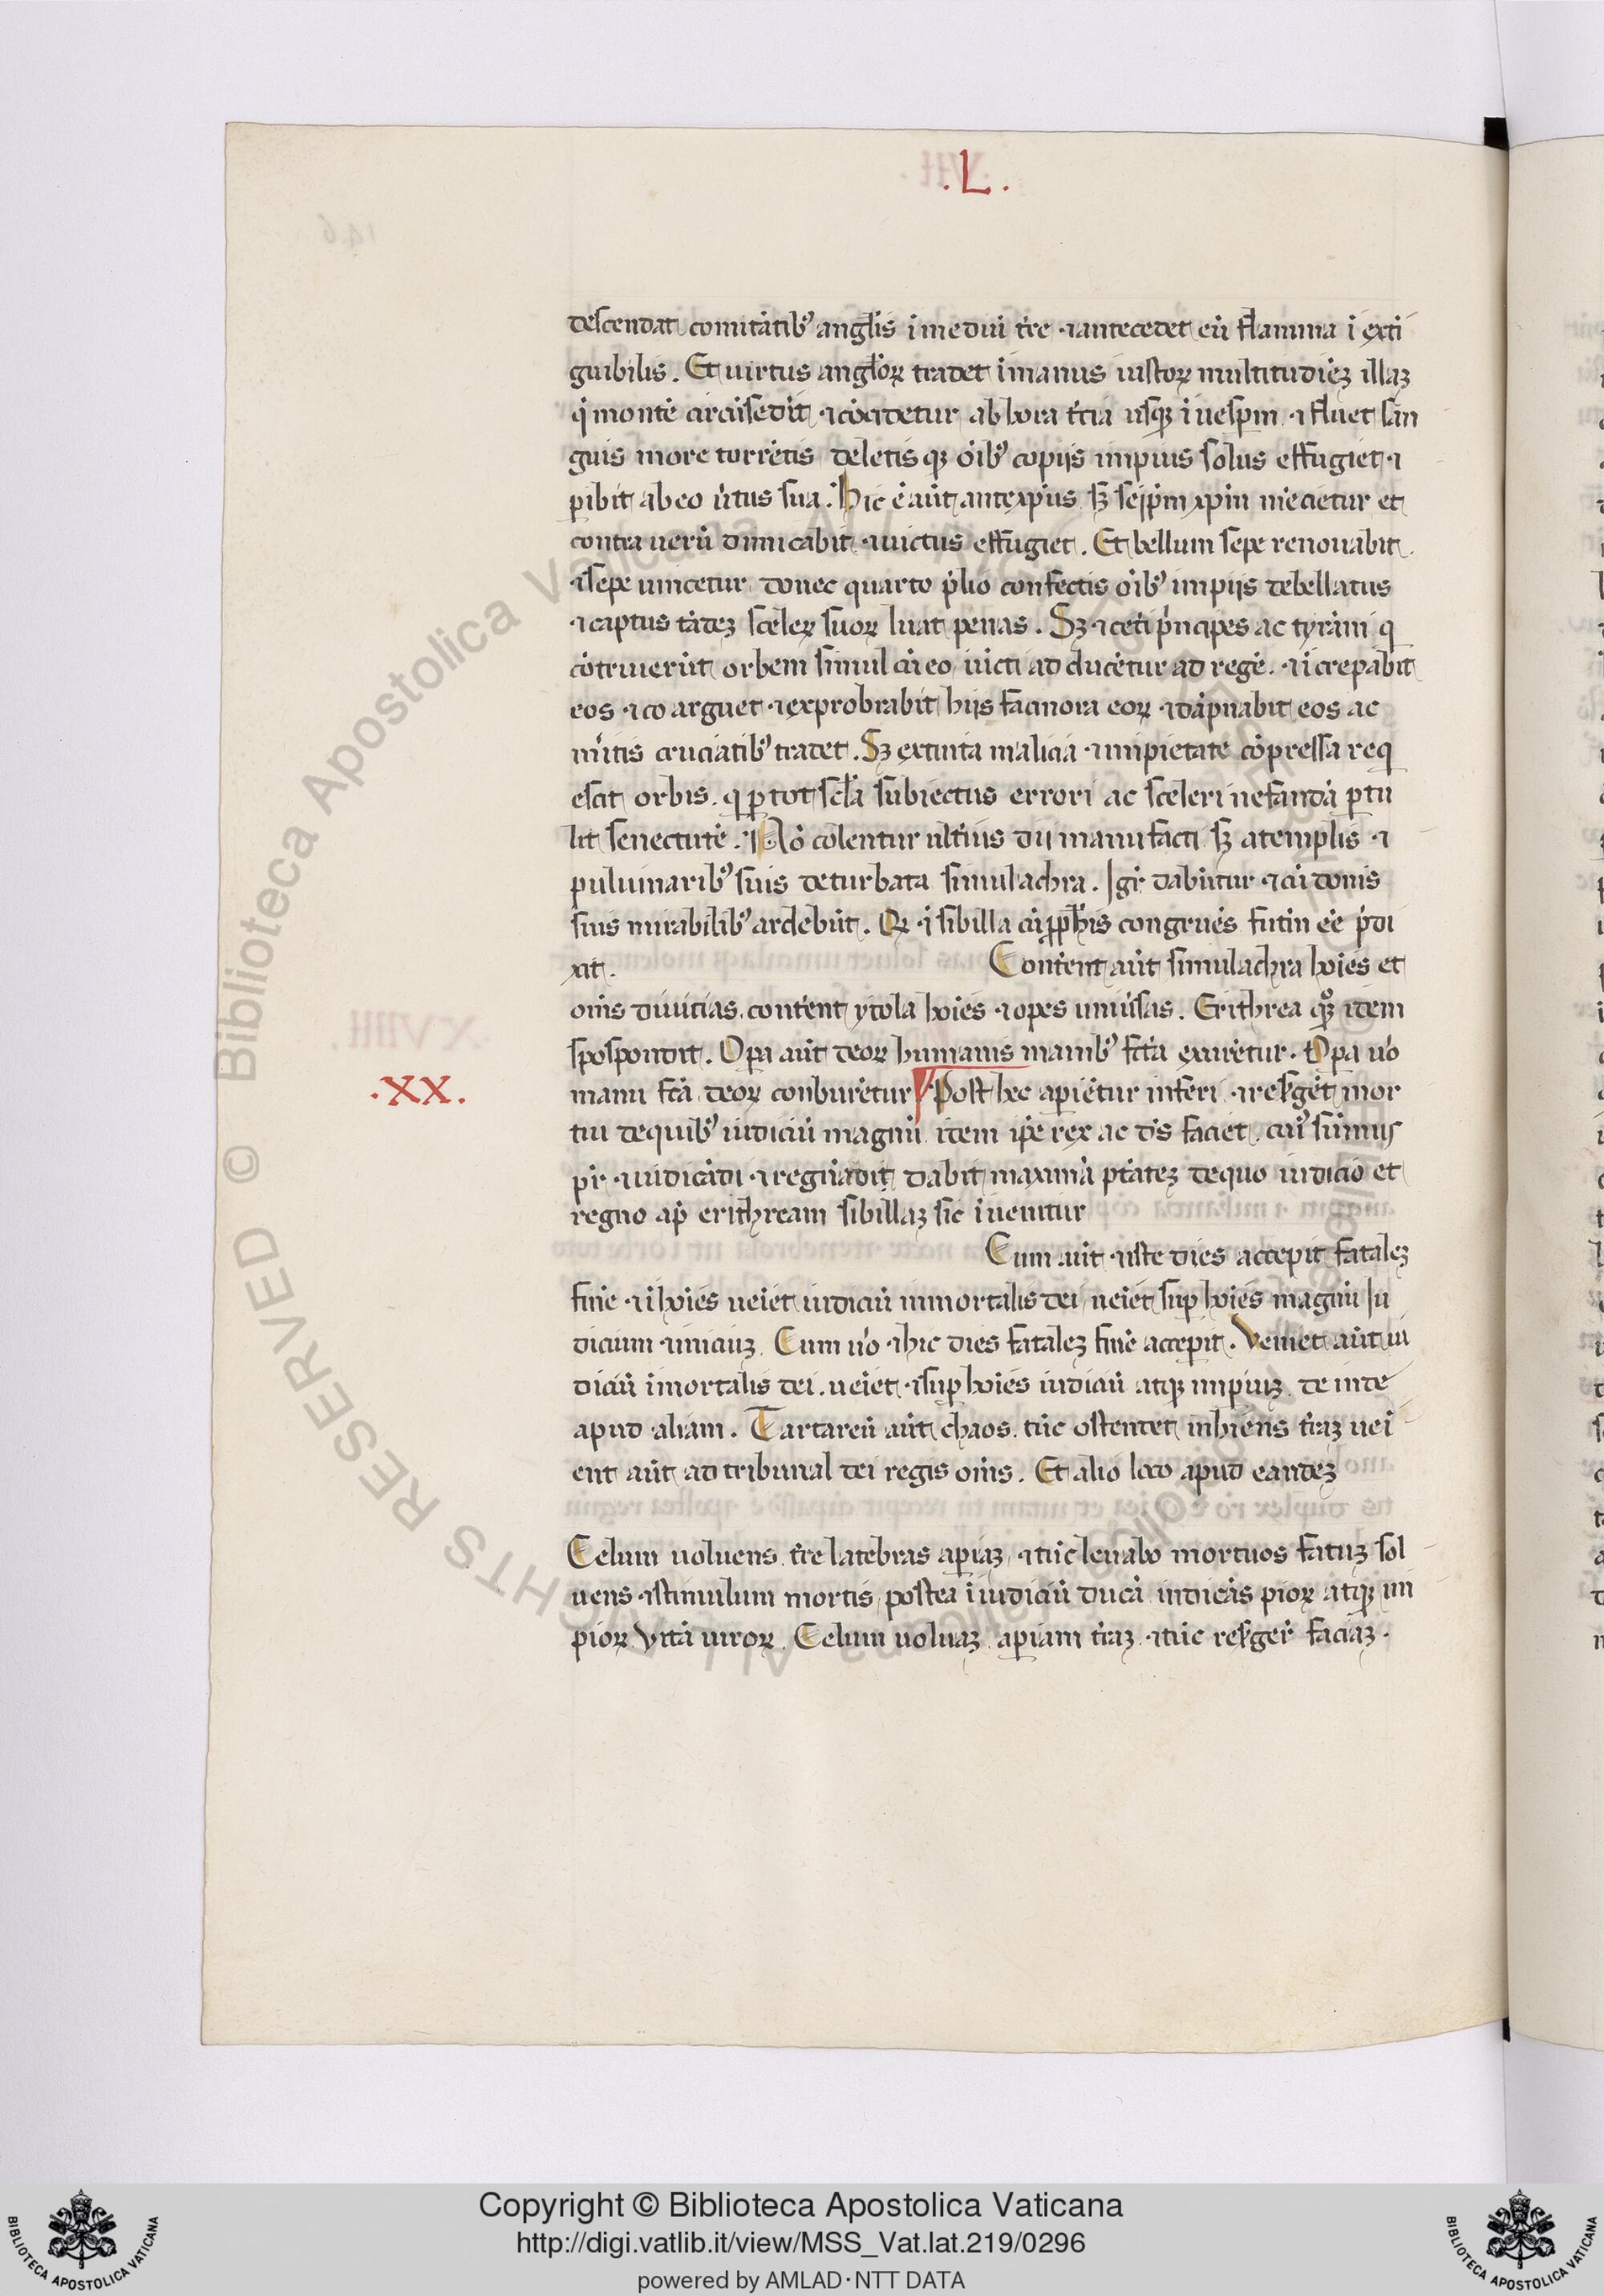 .L.
descendat comitātib⁹ angl̄is ī mediū t̄re ⁊ antecedet eū flamma ī exti
guibilis. Et uirtus angl̄oꝝ tradet ī manus iustoꝝ multitudīeꝫ illaꝫ
q̄ montē circūsedīt ⁊ cōcidetur ab hora t̄cia usqꝫ ī uesꝑm ⁊ fluet san
guis more torrētis deletisqꝫ oīb⁹ copijs impius solus effugiet ⁊
ꝑibit ab eo ūtus sua. Hic ē aūt antexp̄ius sꝫ seip̄m xp̄m mēcietur et
contra uerū dimicabit ⁊ uictus effugiet. Et bellum sepe renouabit
⁊ sepe uincetur donec quarto p̄lio confectis oīb⁹ impijs debellatus
⁊ captus tādeꝫ sceleꝝ suoꝝ luat penas. Sꝫ ⁊ cet̄i p̄ncipes ac tyrāni q
cōtriuerūt orbem simul cū eo uīcti ad ducētur ad regē. ⁊ īcrepabit
eos ⁊ coarguet ⁊ exprobrabit hijs facinora eoꝝ ⁊ dāpnabit eos ac
m̄itis cruciatib⁹ tradet. Sꝫ extinta malicia ⁊ impietate cōpressa req
escit orbis. q ꝑ tot scl̄a subiectus errori ac sceleri nefandā ꝑtu
lit senectutē. Nō colentur ult̄ius dij manufacti sꝫ a templis ⁊
puluinarib⁹ suis deturbata simulachra. Igī dabūtur ⁊ cū donis
suis mirabilib⁹ ardebūt. Qꝝ ⁊ sibilla cū ꝓph̄is congruēs futm̄ eē p̄di
xit.
Cont̄ent aūt simulachra hoīes et
om̄s diuitias. cont̄ent ytola hoīes ⁊ opes uniūsas. Erithrea quoqꝫ idem
spospondit. Oꝑa aūt deoꝝ humanis manib⁹ fc̄ta exurētur. Oꝑa ūo
.XX.
manu fc̄a deoꝝ conburētur Post hec aꝑiētur inferi ⁊ resūgēt mor
tui de quib⁹ iudiciū magnū idem ip̄e rex ac d̄s faciet. cui sūmus
pr̄ ⁊ iudicādi ⁊ regnādi dabit maximā ptāteꝫ de quo iudicio et
regno ap̄ erithream sibillaꝫ sic īuenitur
Cum aūt iste dies accepit fataleꝫ
finē ⁊ ī hoīes ueīet iudiciū immortalis dei ueīet suꝑ hoīes magnū Iu
dicium ⁊ inicuꝫ. Cum ūo ⁊ hic dies fataleꝫ finē acceꝑit. Veniet aūt iu
diciū īmortalis dei. ueīet ⁊ suꝑ hoīes iudiciū atqꝫ impuꝫ. de inde
apud aliam. Tartareū aūt chaos tūc ostendet inhiens t̄raꝫ ueī
ent aūt ad tribunal dei regis om̄s. Et alio loco apud eandeꝫ
Celum uoluens t̄re latebras aꝑiaꝫ ⁊ tūc leuabo mortuos fatuꝫ sol
uens ⁊ stimulum mortis postea ī iudiciū ducā iudicās pioꝝ atqꝫ im
pioꝝ Vitā uiroꝝ. Celum uoluaꝫ aꝑiam t̄raꝫ ⁊ tūc resūgeꝛ̄ faciaꝫ.
Copyright © Biblioteca Apostolica Vaticana
http://digi.vatlib.it/view/MSS_Vat.lat.219/0296
powered by AMLAD·NTT DATA